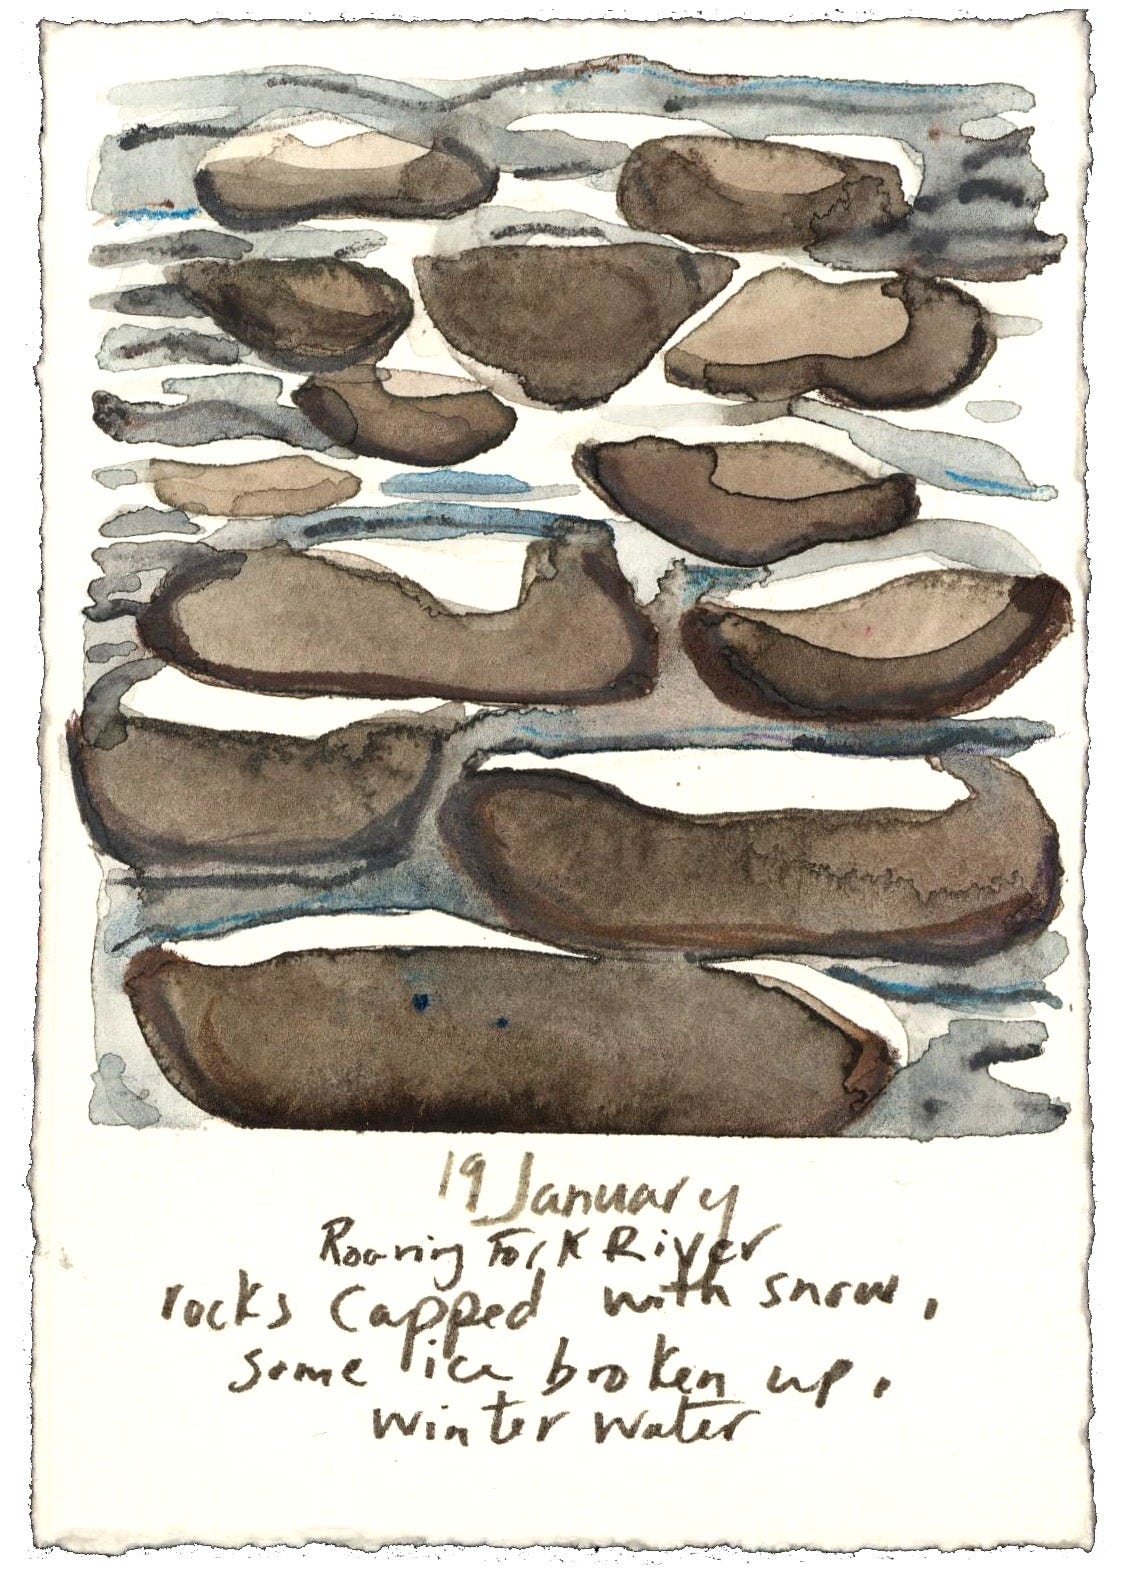 19 January
Roaring Fork River
rocks capped with snow,
some ice broken up,
winter water